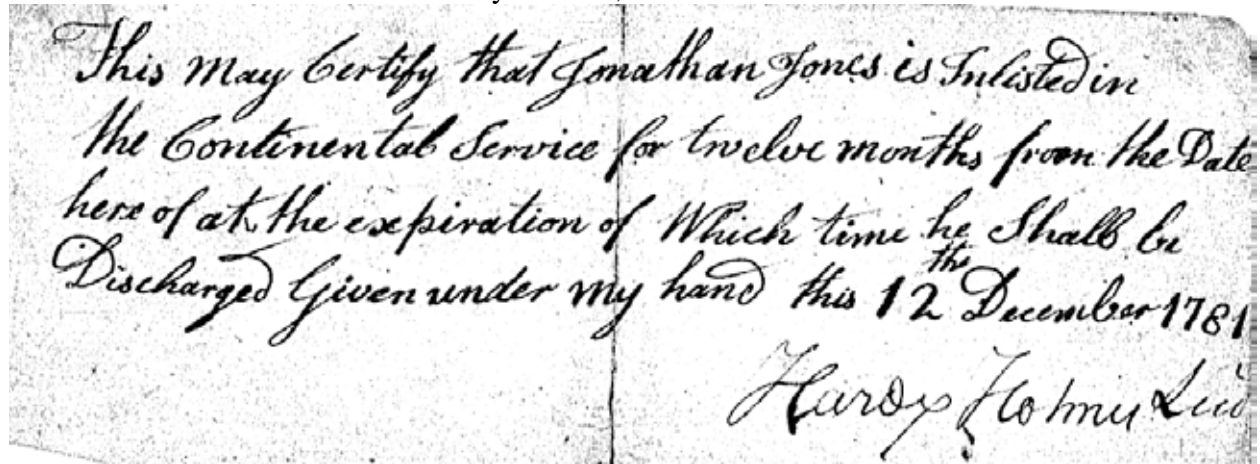 This May Certify that Jonathan Jones is Inlisted in
the Continental Service for twelve months from the Date
here of at the expiration of Which time he Shall be
Discharged Given under my hand this 12th December 1781
Hardy Holmes